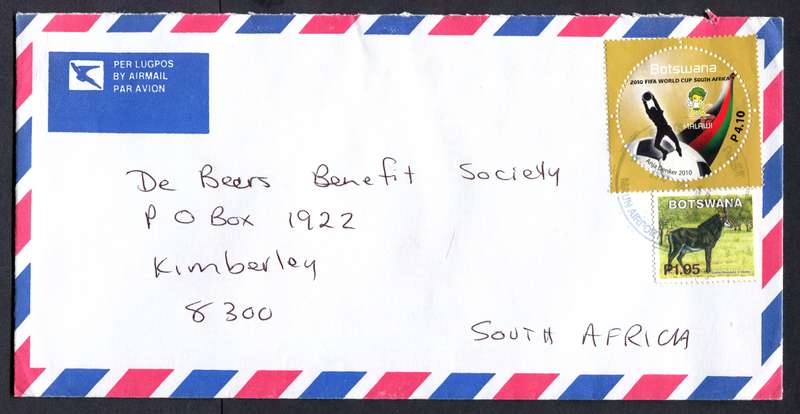 PER LUGPOS
BY AIRMAIL
PAR AVION
Botswana
2010 FIFA WORLD CUP SOUTH AFRICA
MALAWI
P4.10
2010
BOTSWANA
P1.95
De Beers Benefit Society
P O Box 1922
Kimberley
8300
SOUTH AFRICA